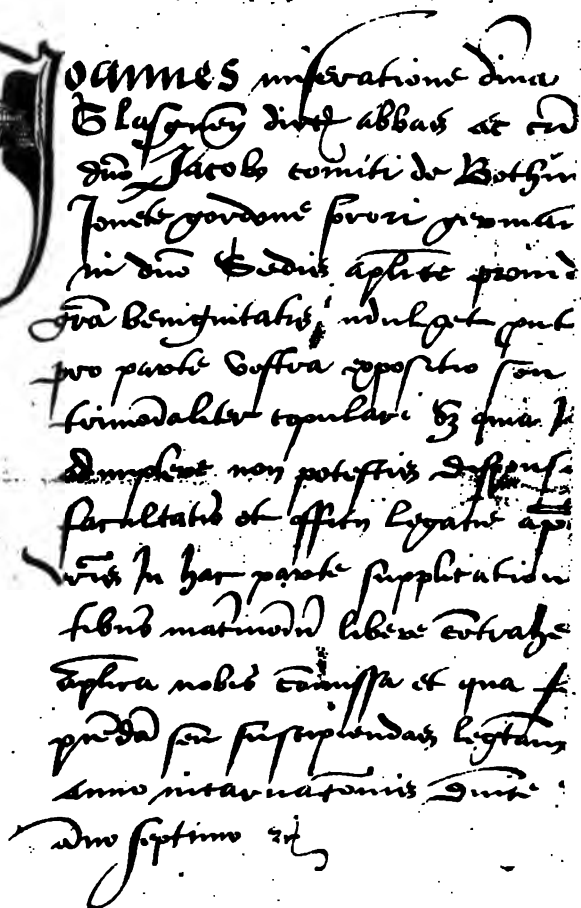 Joannes miseratione diuia
Glasguen dioc abbas ac
dno Jacobo comiti de Bothui
Jonete gordone sorori german
in dno Sedis aplice prouid
gra benignitatis indulget
pro parte vestra expositio seu
trimonialiter copulari Sz quia
adimplere non potestis dispens
facultatis et officii legatie ap
In hac parte supplication
tibus matrimoniu libere contrahe
aplica nobis comissa et qua f
seu suscipiendas legittam
Anno incarnationis dnice
ano septimo